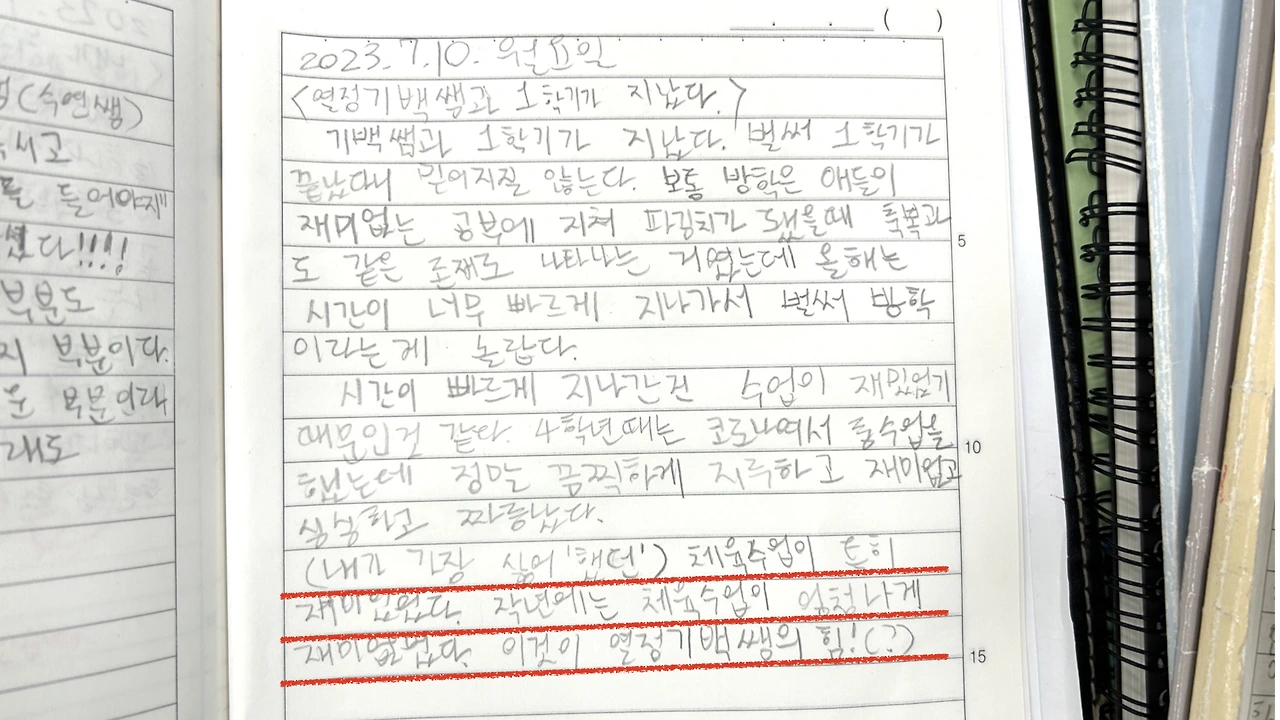 (수연쌤)
들어야지"
다!!!!
부분도
부분이다.
부분인다
래도
2023. 7. 10. 월요일
<열정기백쌤과 1학기가 지났다.>
기백쌤과 1학기가 지났다. 벌써 1학기가
끝났다니 믿어지질 않는다. 보통 방학은 애들이
재미없는 공부에 지쳐 파김치가 됐을때 축복과
도 같은 존재로 나타나는 거였는데 올해는
시간이 너무 빠르게 지나가서 벌써 방학
이라는게 놀랍다.
시간이 빠르게 지나간건 수업이 재밌었기
때문인것 같다. 4학년때는 코로나여서 줌수업을
했는데 정말 끔찍하게 지루하고 재미없고
짜증났다.
(내가 가장 싫어 했던!) 체육수업이 특히
재미있었다. 작년에는 체육수업이 엄청나게
재미없었다. 이것이 열정기백쌤의 힘!(?)
5
10
15